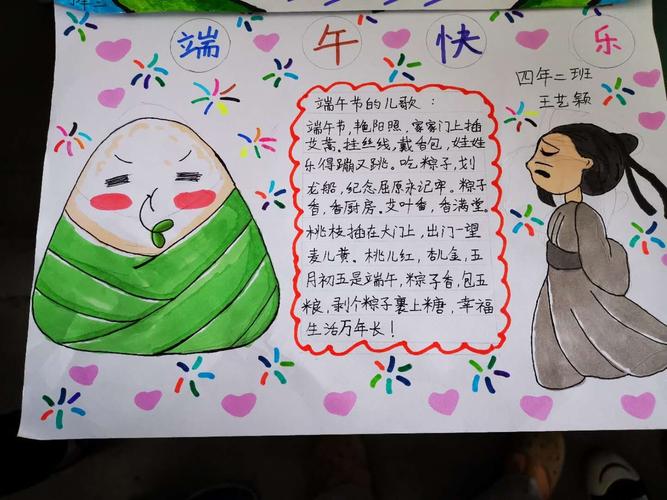 端午快乐
四年二班
王艺颖
端午节的儿歌：
端午节,艳阳照,家家门上插
艾蒿,挂丝线,戴香包,娃娃
乐得蹦又跳。吃粽子,划
龙船,纪念屈原永记牢。粽子
香,香厨房。艾叶香,香满堂。
桃枝插在大门上,出门一望
麦儿黄。桃儿红,杏儿金,五
月初五是端午,粽子香,包五
粮,剥个粽子裹上糖,幸福
生活万年长！